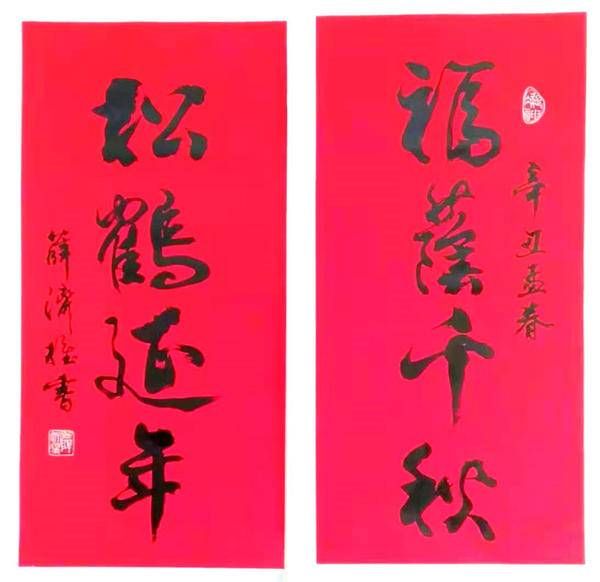 辛丑孟春
福蔭千秋
松鶴延年
薛濟桂書